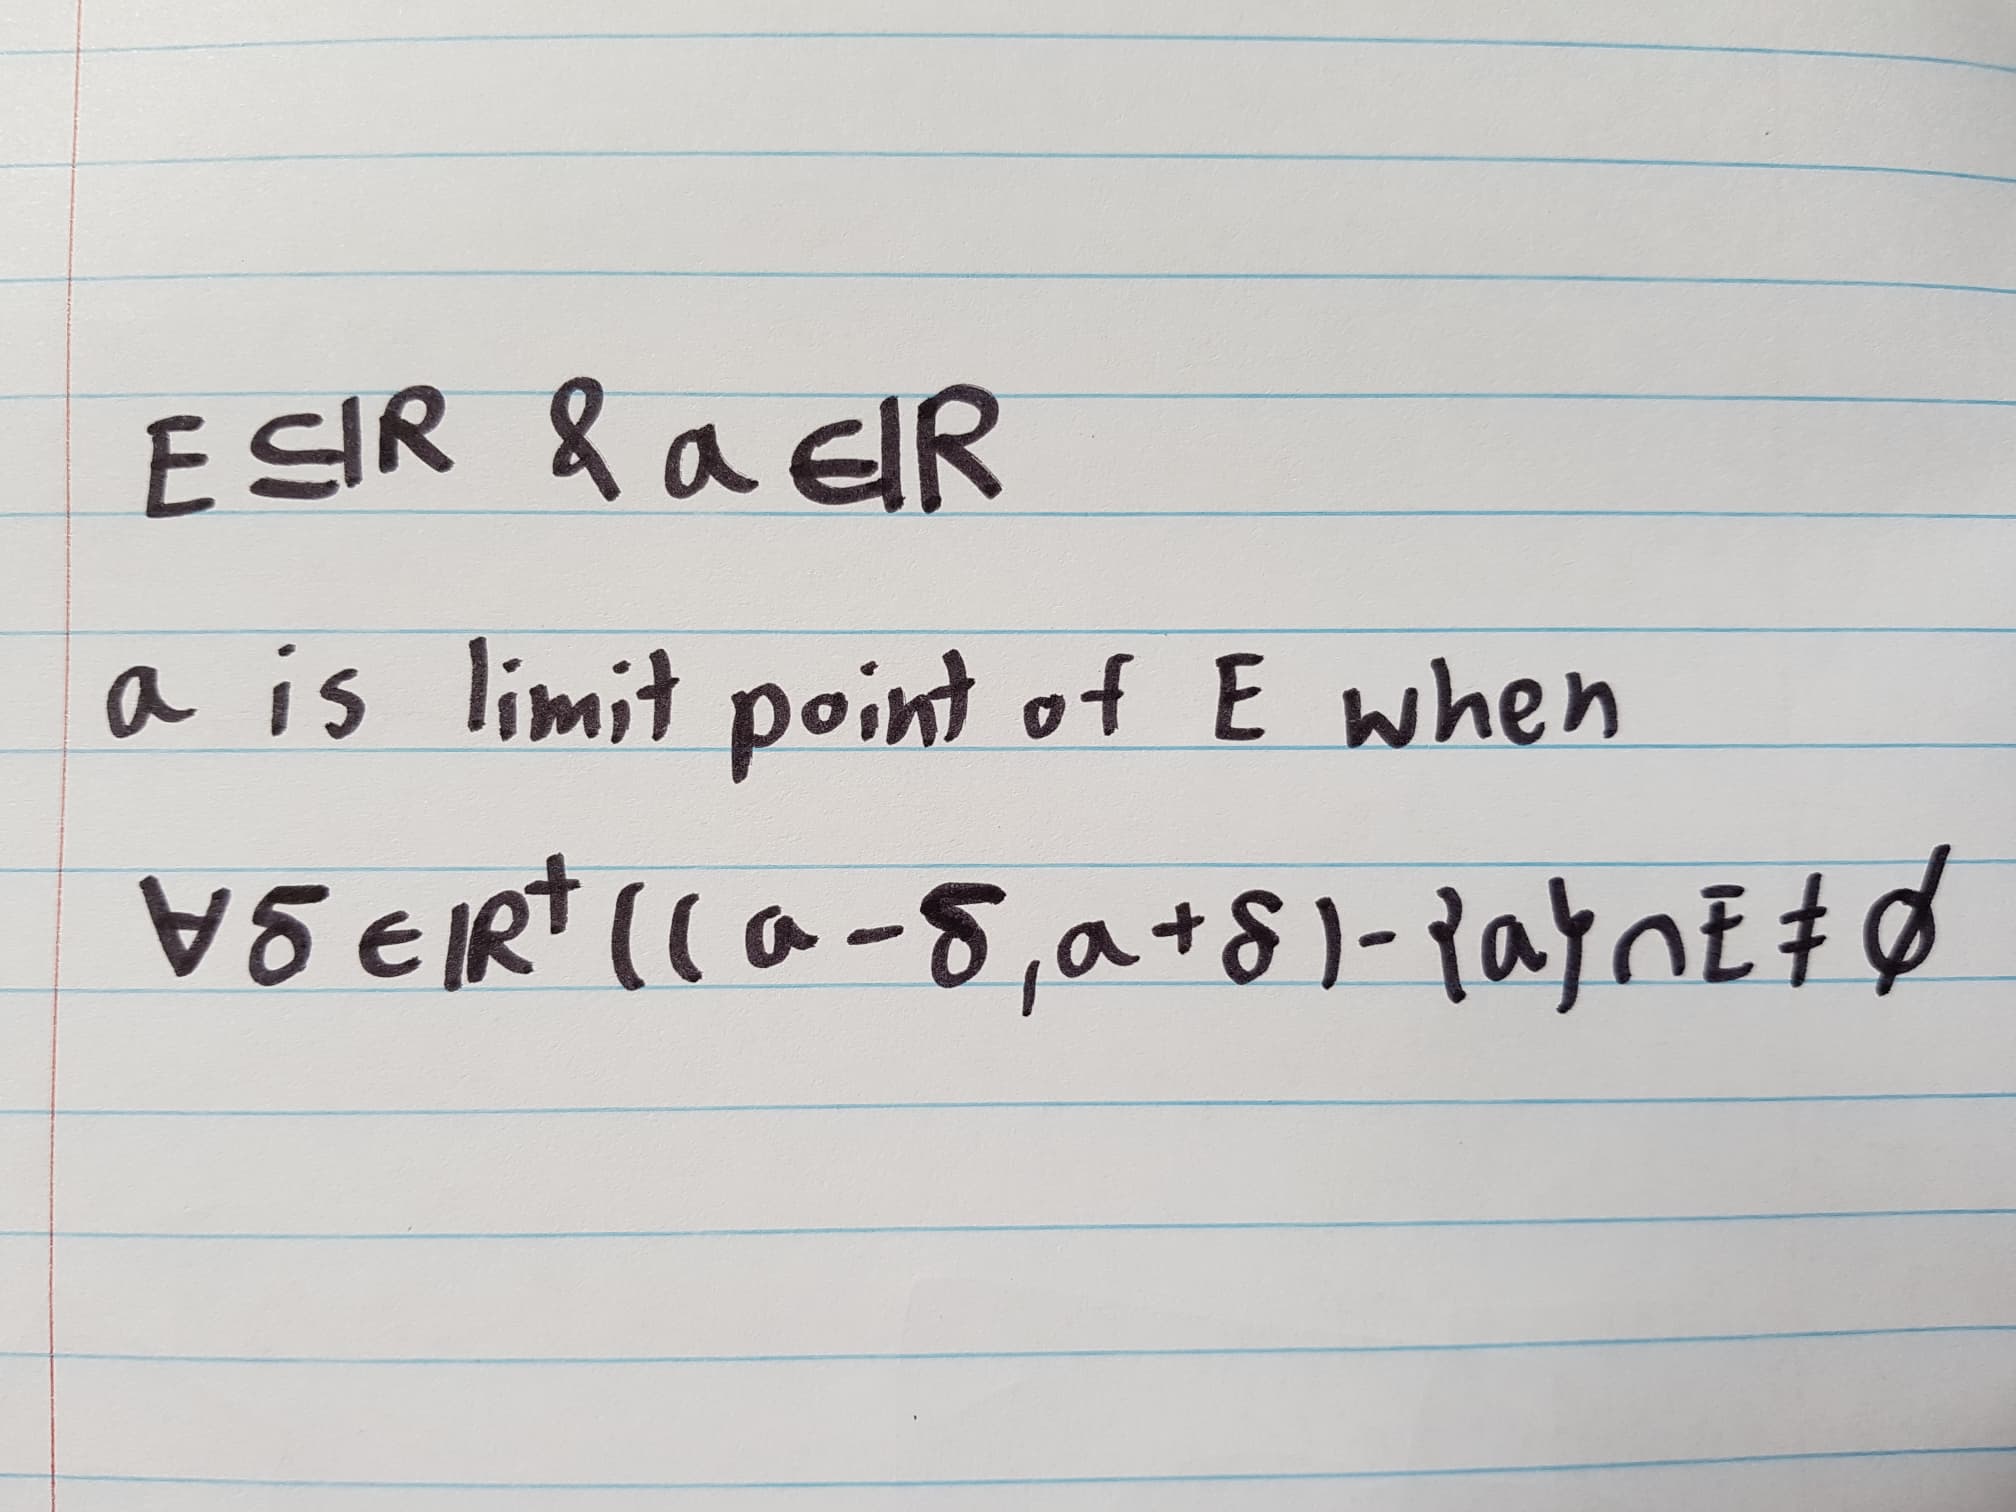 E ⊆ ℝ & a ∈ ℝ
a is limit point of E when
∀δ ∈ ℝ⁺ ((a-δ, a+δ)-{a}∩E ≠ ∅